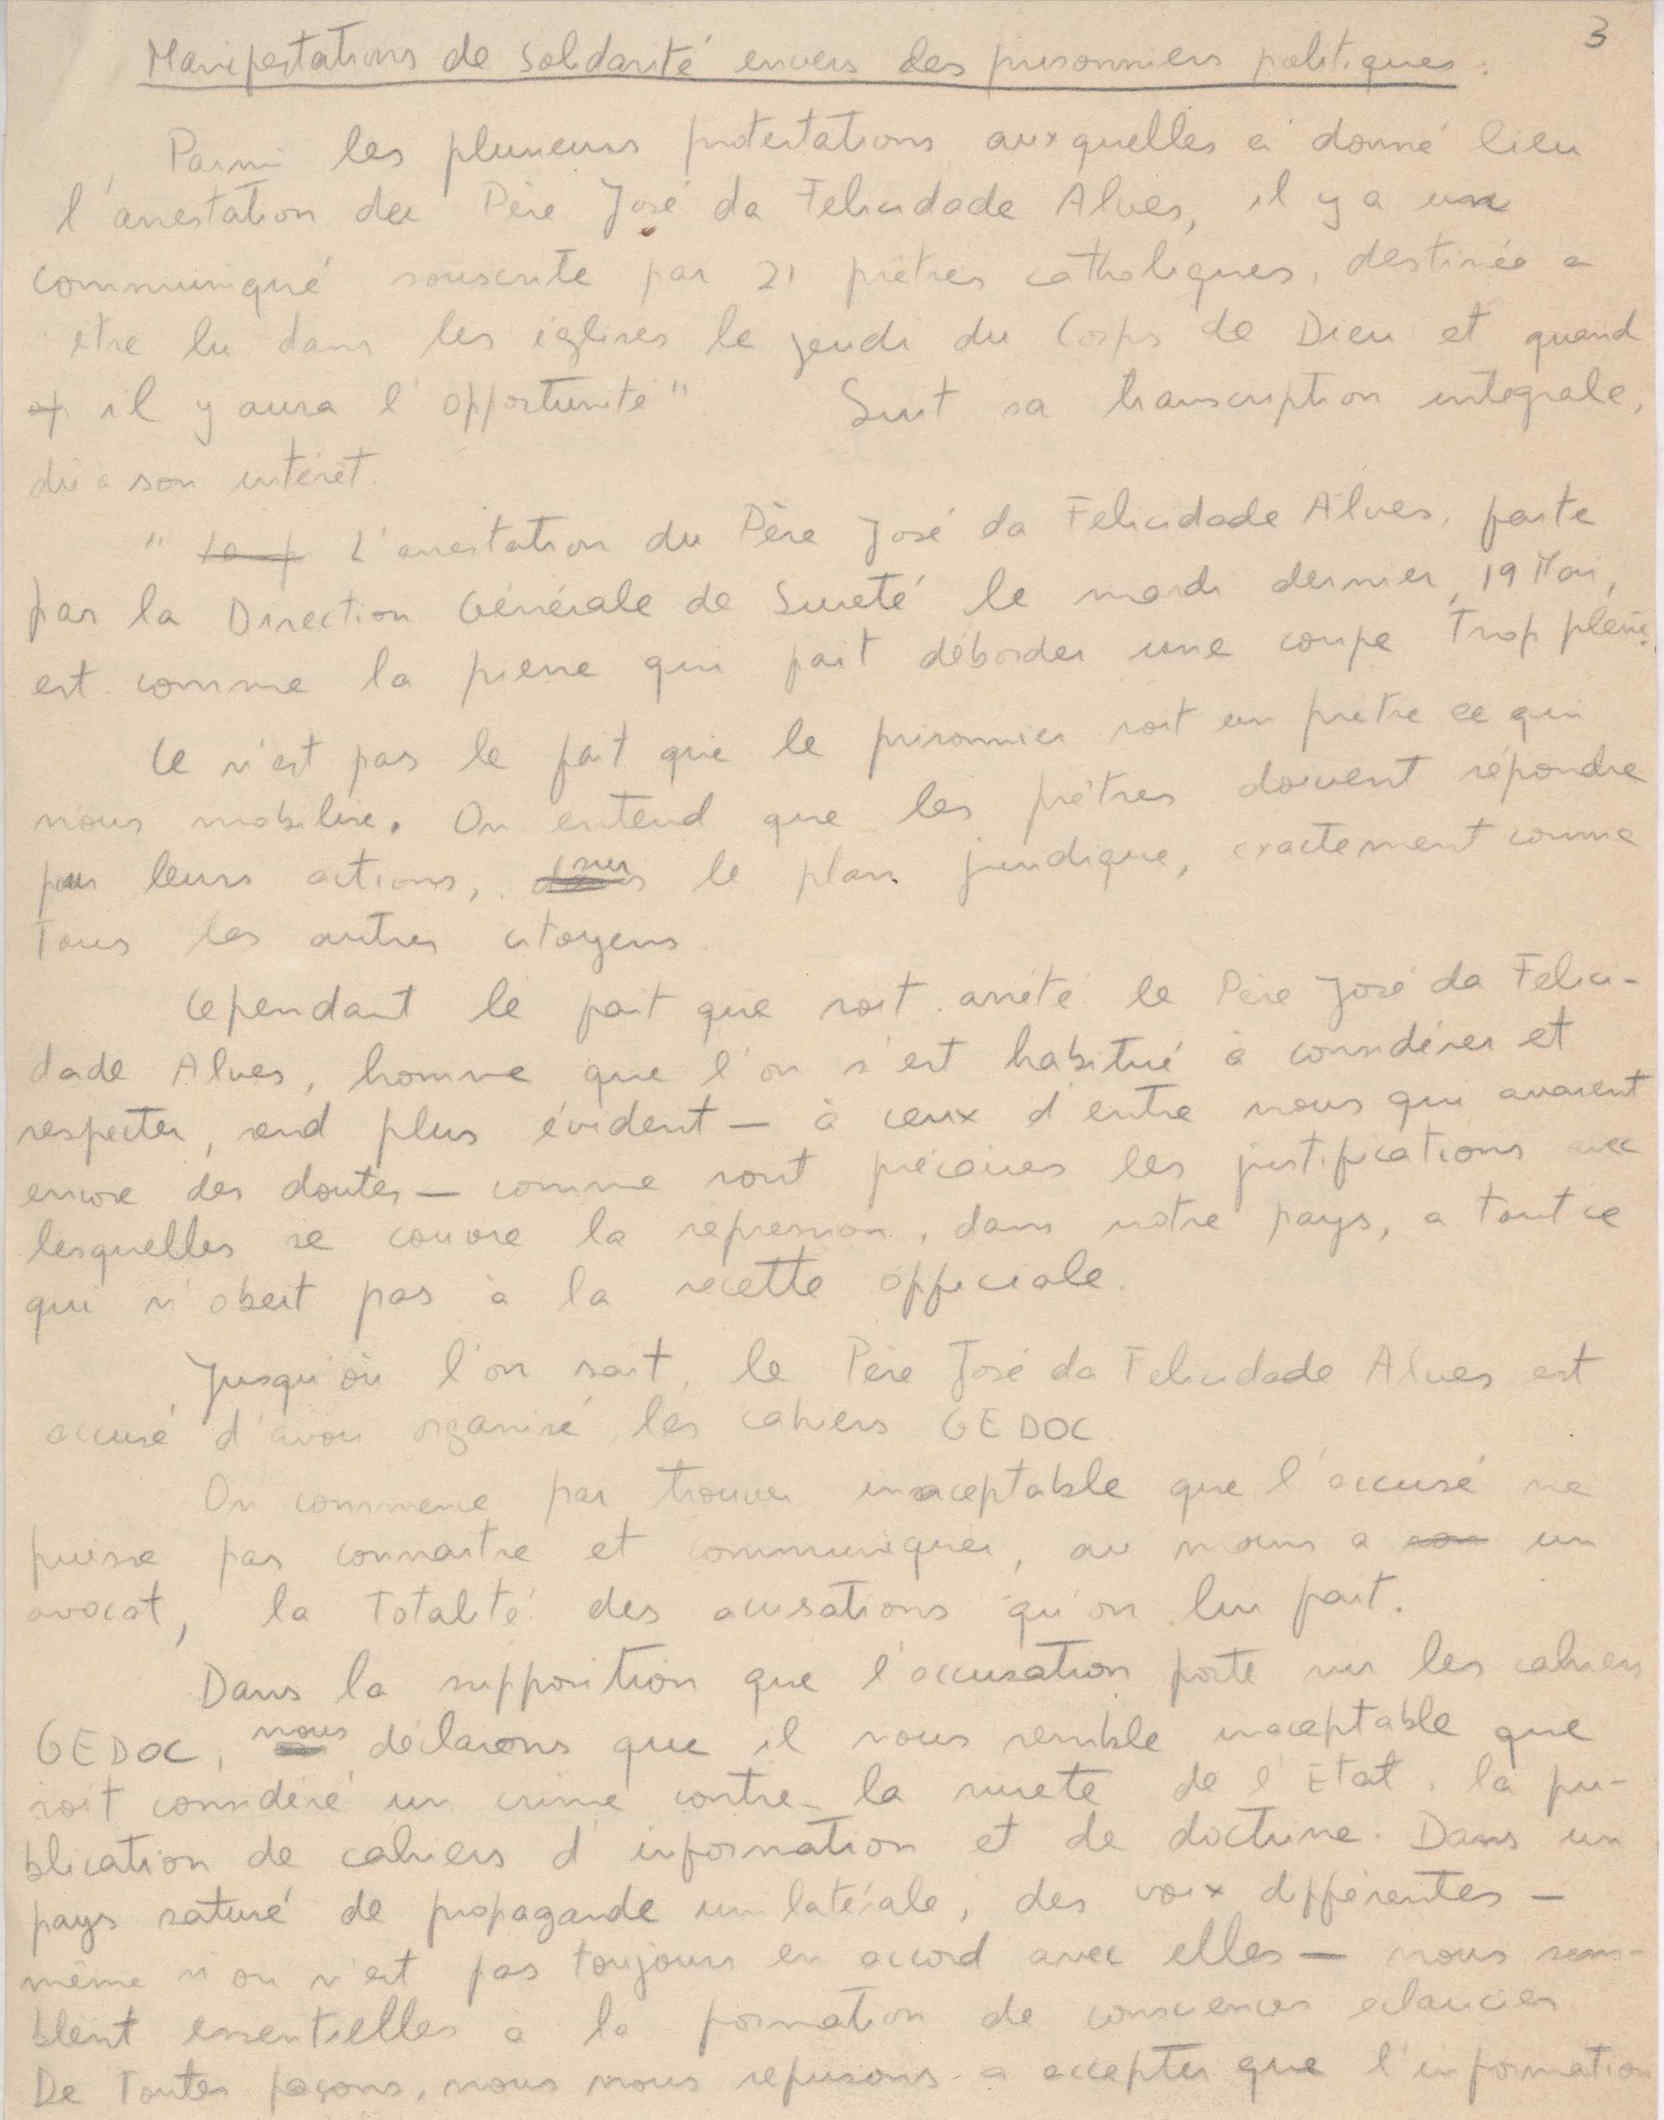 3
Manifestations de solidarité envers des prisonniers politiques :
Parmi les plusieurs protestations auxquelles a donné lieu
l'arrestation du Père José da Felicidade Alves, il y a un
communiqué souscrite par 21 prêtres catholiques, destinée a
etre lu dans les églises le jeudi du Corps de Dieu et quand
il y aura l'opportunité" Suit sa transcription integrale,
dû a son intérêt.
" L'arrestation du Père José da Felicidade Alves, faite
par la Direction Générale de Sureté le mardi dernier, 19 Mai,
est comme la pierre qui fait déborder une coupe trop pleine.
Ce n'est pas le fait que le prisonnier soit un prêtre ce qui
nous mobilise. On entend que les prêtres doivent répondre
pour leurs actions, sur le plan juridique, exactement comme
tous les autres citoyens.
Cependant le fait que soit arrêté le Père José da Felici-
dade Alves, homme que l'on s'est habitué à considérer et
respecter, rend plus évident — à ceux d'entre nous qui avaient
encore des doutes — comme sont précaires les justifications avec
lesquelles se couvre la repression, dans notre pays, a tout ce
qui n'obeit pas à la recette officiale.
Jusqu'où l'on sait, le Père José da Felicidade Alves est
accusé d'avoir organisé les cahiers GEDOC.
On commence par trouver inacceptable que l'accusé ne
puisse pas connaitre et communiquer, au moins a un
avocat, la totalité des acusations qu'on lui fait.
Dans la supposition que l'accusation porte sur les cahiers
GEDOC, nous déclarons que il nous semble inaceptable que
soit considéré un crime contre la sureté de l'Etat, la pu-
blication de cahiers d'information et de doctrine. Dans un
pays saturé de propagande unilatérale, des voix différentes —
même si on n'est pas toujours en accord avec elles — nous sem-
blent essentielles a la formation de consciences eclaircies
De toutes façons, nous nous refusons a accepter que l'information